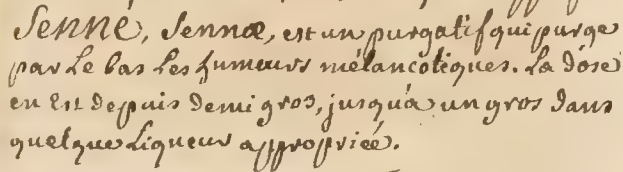 Senné, Sennæ, est un purgatif qui purge
par Le bas Les humeurs mélancoliques. La dose
en Est depuis Demi gros, jusqu'a un gros dans
quelque Liqueur appropriée.